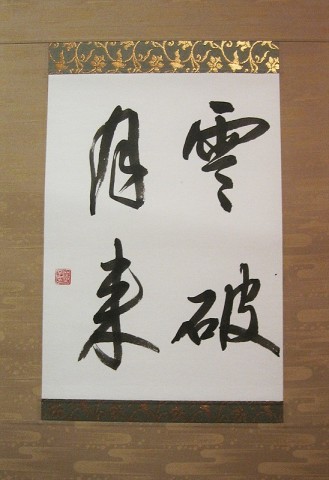 雲破
月来